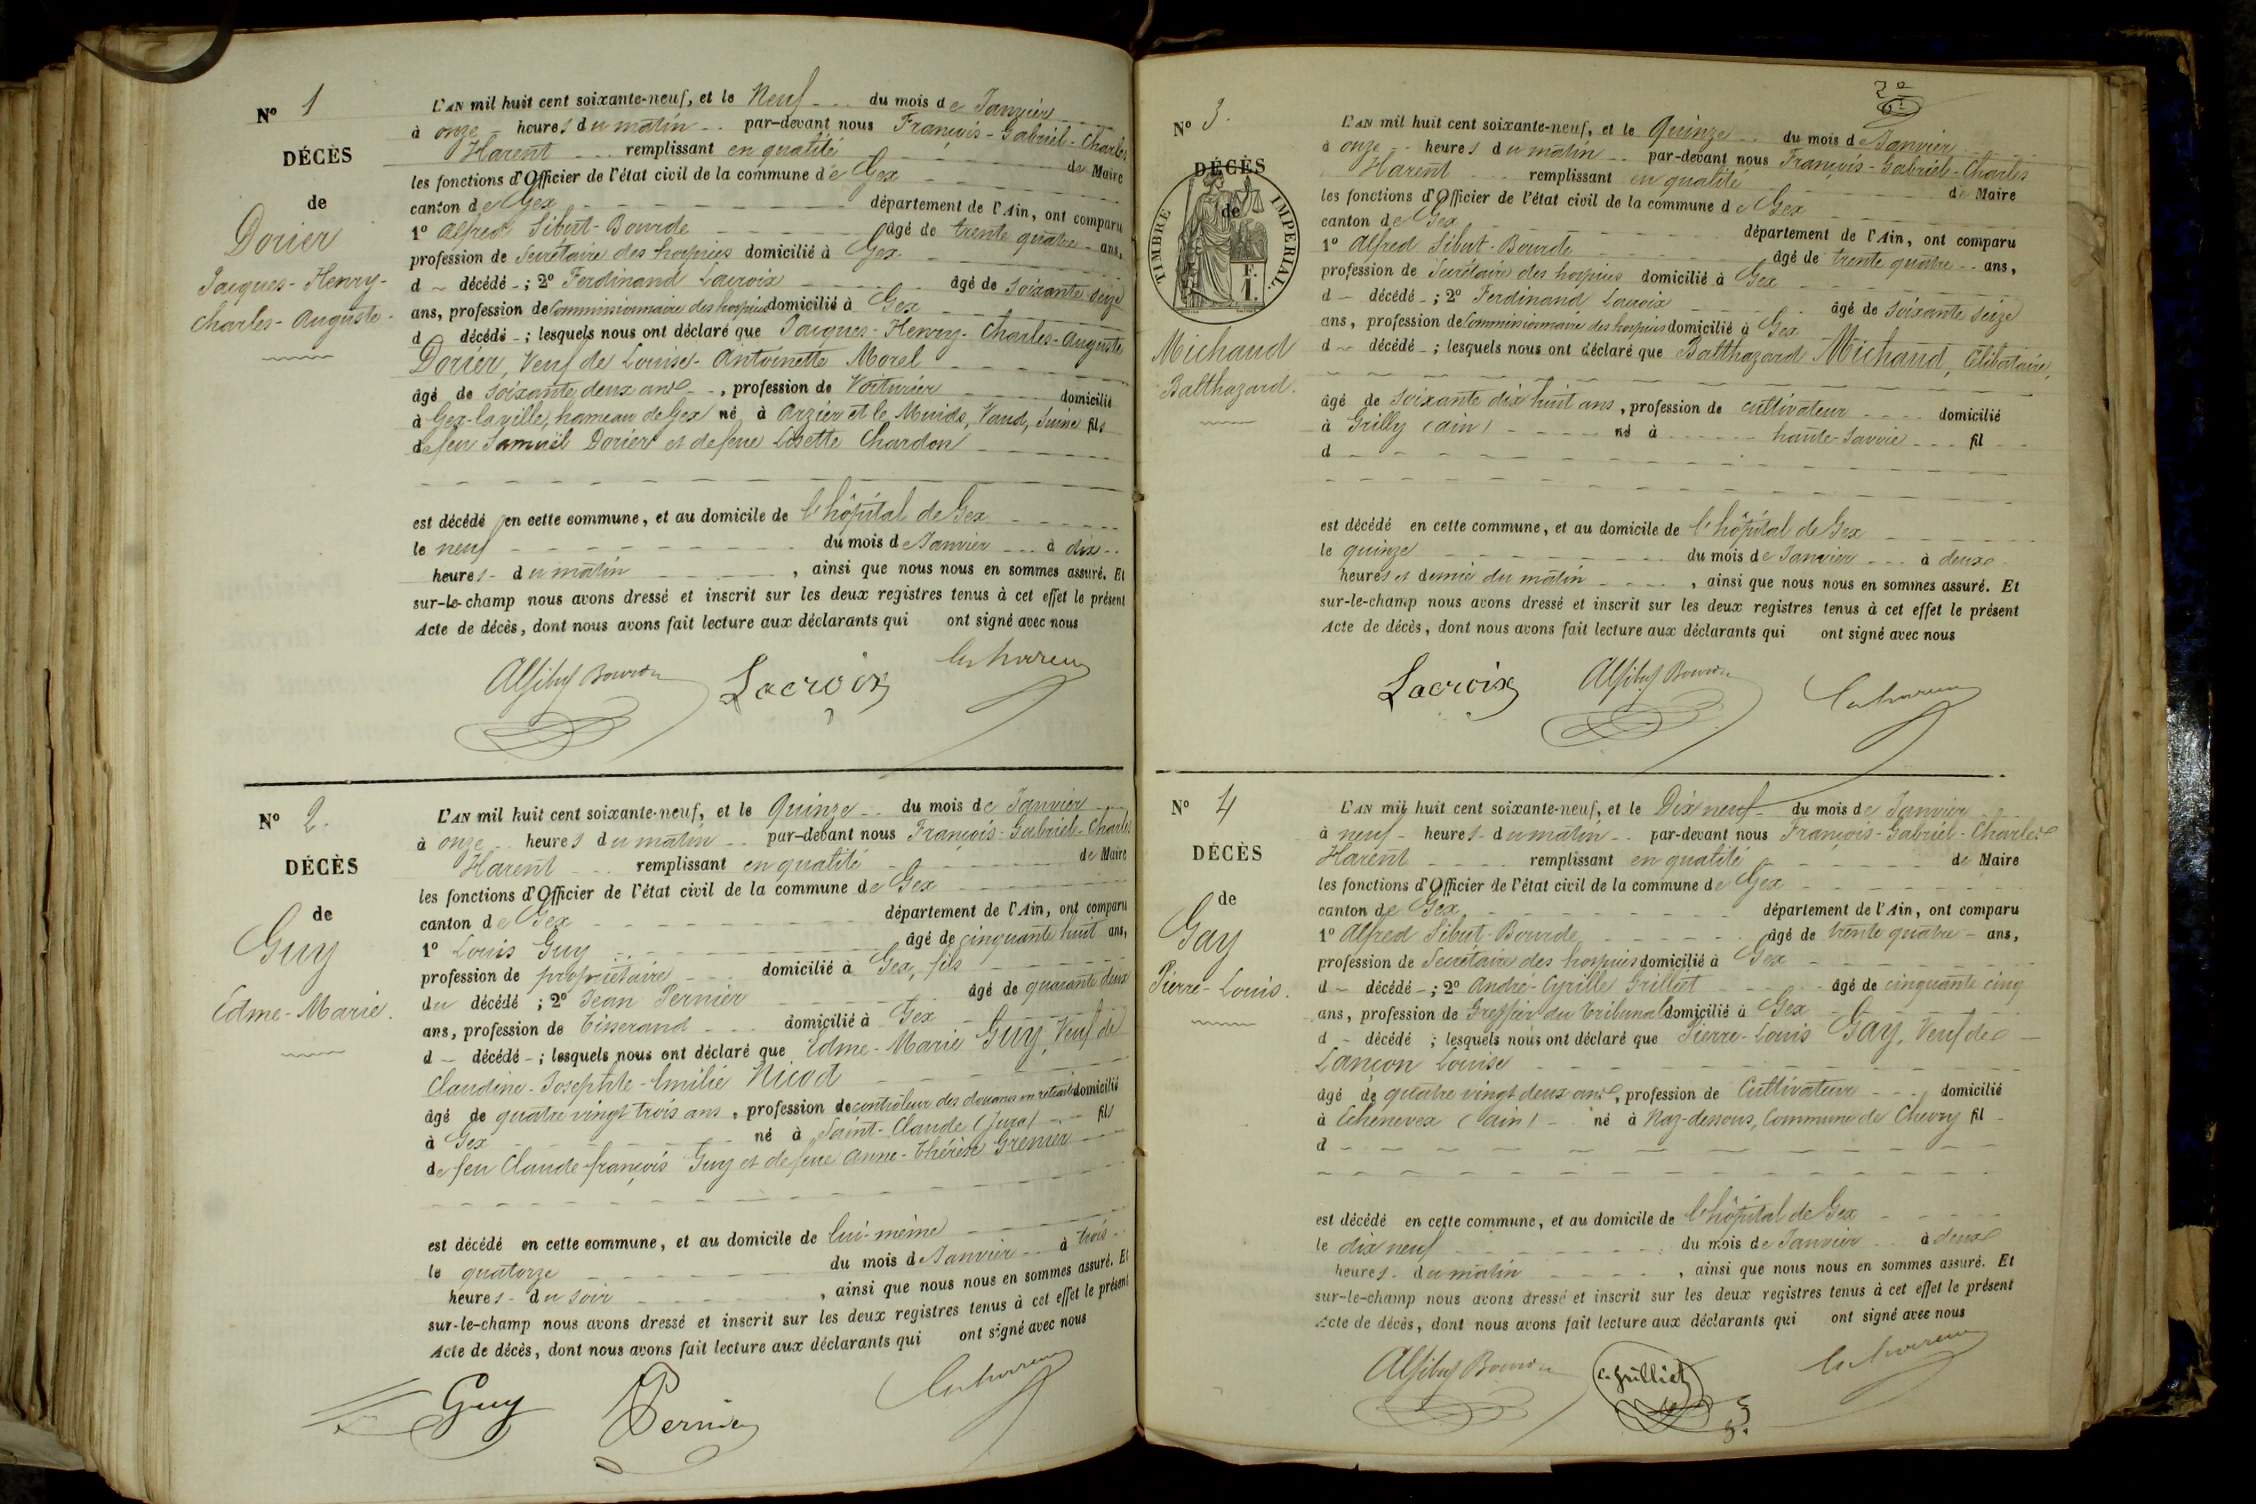 No 1
DÉCÈS
de
Dorier
Jacques-Henry-
Charles-Auguste.
L'AN mil huit cent soixante-neuf, et le Neuf du mois de Janvier
à onze heures du matin par-devant nous François-Gabriel-Charles
Harent remplissant en qualité de Maire
les fonctions d'Officier de l'état civil de la commune de Gex
canton de Gex département de l'Ain, ont comparu
1o Alfred Sibut-Bourde âgé de trente quatre ans,
profession de Secrétaire des hospices domicilié à Gex
d décédé ; 2o Ferdinand Lacroix âgé de soixante seize
ans, profession de Commissionnaire des hospices domicilié à Gex
d décédé ; lesquels nous ont déclaré que Jacques-Henry-Charles-Auguste
Dorier, Veuf de Louise-Antoinette Morel
âgé de soixante deux ans, profession de Voiturier domicilié
à Gex-la-ville, hameau de Gex né à Arzier et le Muids, Vaud, Suisse fils
de feu Samuël Dorier et de feue Lisette Chardon
est décédé en cette commune, et au domicile de l'hôpital de Gex
le neuf du mois de Janvier à dix
heures du matin, ainsi que nous nous en sommes assuré. Et
sur-le-champ nous avons dressé et inscrit sur les deux registres tenus à cet effet le présent
Acte de décès, dont nous avons fait lecture aux déclarants qui ont signé avec nous
Lacroix
No 2.
DÉCÈS
de
Guy
Edme-Marie.
L'AN mil huit cent soixante-neuf, et le Quinze du mois de Janvier
à onze heures du matin par-devant nous François-Gabriel-Charles
Harent remplissant en qualité de Maire
les fonctions d'Officier de l'état civil de la commune de Gex
canton de Gex département de l'Ain, ont comparu
1o Louis Guy âgé de cinquante huit ans,
profession de propriétaire domicilié à Gex, fils
du décédé ; 2o Jean Pernier âgé de quarante deux
ans, profession de Tisserand domicilié à Gex
d décédé ; lesquels nous ont déclaré que Edme-Marie Guy, Veuf de
Claudine-Josephte-Emilie Nicod
âgé de quatre vingt trois ans, profession de contrôleur des douanes en retraite domicilié
à Gex né à Saint-Claude (Jura) fils
de feu Claude françois Guy et de feue Anne-Thérèse Grenier
est décédé en cette commune, et au domicile de lui-même
le quatorze du mois de Janvier à trois
heures du soir, ainsi que nous nous en sommes assuré. Et
sur-le-champ nous avons dressé et inscrit sur les deux registres tenus à cet effet le présent
Acte de décès, dont nous avons fait lecture aux déclarants qui ont signé avec nous
Guy Pernier
No 3.
DÉCÈS
de
TIMBRE IMPERIAL.
F. I.
Michaud
Balthazard.
L'AN mil huit cent soixante-neuf, et le Quinze du mois de Janvier
à onze heures du matin par-devant nous François-Gabriel-Charles
Harent remplissant en qualité de Maire
les fonctions d'Officier de l'état civil de la commune de Gex
canton de Gex département de l'Ain, ont comparu
1o Alfred Sibut-Bourde âgé de trente quatre ans,
profession de Secrétaire des hospices domicilié à Gex
d décédé ; 2o Ferdinand Lacroix âgé de soixante seize
ans, profession de Commissionnaire des hospices domicilié à Gex
d décédé ; lesquels nous ont déclaré que Balthazard Michaud, Célibataire,
âgé de soixante dix huit ans, profession de cultivateur domicilié
à Grilly (Ain) né à haute-Savoie fil
d
est décédé en cette commune, et au domicile de l'hôpital de Gex
le quinze du mois de Janvier à deux
heures et demie du matin, ainsi que nous nous en sommes assuré. Et
sur-le-champ nous avons dressé et inscrit sur les deux registres tenus à cet effet le présent
Acte de décès, dont nous avons fait lecture aux déclarants qui ont signé avec nous
Lacroix
No 4
DÉCÈS
de
Gay
Pierre-Louis.
L'AN mil huit cent soixante-neuf, et le Dix neuf du mois de Janvier
à neuf heures du matin par-devant nous François-Gabriel-Charles
Harent remplissant en qualité de Maire
les fonctions d'Officier de l'état civil de la commune de Gex
canton de Gex département de l'Ain, ont comparu
1o Alfred Sibut-Bourde âgé de trente quatre ans,
profession de Secrétaire des hospices domicilié à Gex
d décédé ; 2o André-Cyrille Grilliet âgé de cinquante cinq
ans, profession de Greffier du Tribunal domicilié à Gex
d décédé ; lesquels nous ont déclaré que Pierre-Louis Gay, Veuf de
Lançon Louise
âgé de quatre vingt deux ans, profession de Cultivateur domicilié
à Echenevex (Ain) né à Naz-dessous, Commune de Chevry fil
d
est décédé en cette commune, et au domicile de l'hôpital de Gex
le dix neuf du mois de Janvier à deux
heures du matin, ainsi que nous nous en sommes assuré. Et
sur-le-champ nous avons dressé et inscrit sur les deux registres tenus à cet effet le présent
Acte de décès, dont nous avons fait lecture aux déclarants qui ont signé avec nous
C. Grilliet